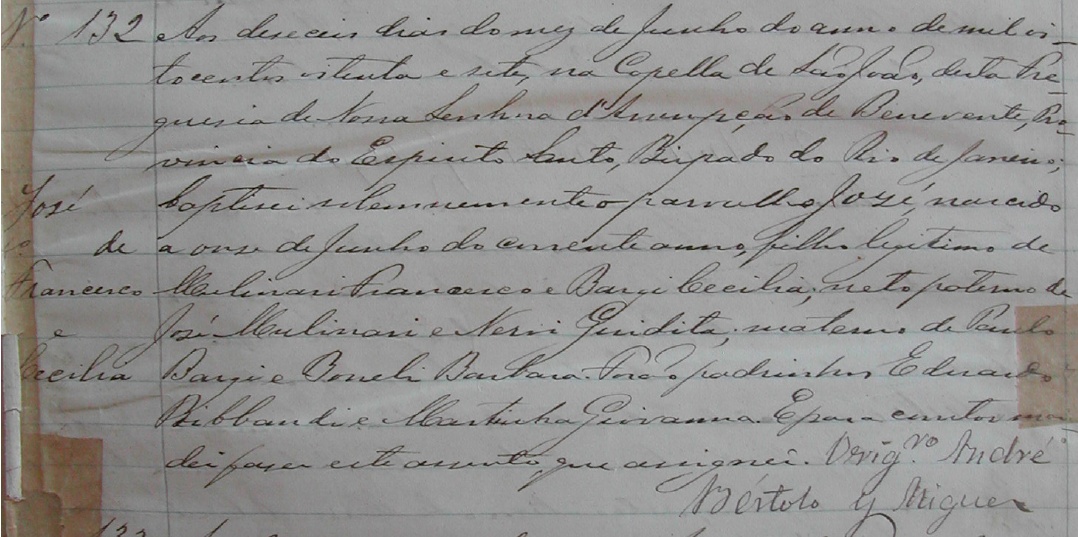 Nº 132 Aos deseceis dias do mez de Junho do anno de mil oi-
tocentos oitenta e sete, na Capella de São João, desta Fre-
guesia de Nossa Senhora d'Assumpção de Benevente, Pro-
vincia do Espirito Santo, Bispado do Rio de Janeiro,
José baptisei solemnemente o parvulho José, nascido
de a onse de Junho do corrente anno, filho legitimo de
Francesco Mulinari Francesco e Bargi Cecilia, neto paterno de
e José Mulinari e Nervi Guidita, materno de Paulo
Cecilia Bargi e Boneli Barbara. Forão padrinhos Eduardo
Bibbandi e Martinha Giovanna. E para constar man-
dei faser este assento, que assignei. O vigrº André
Bértolo y Miguez
133